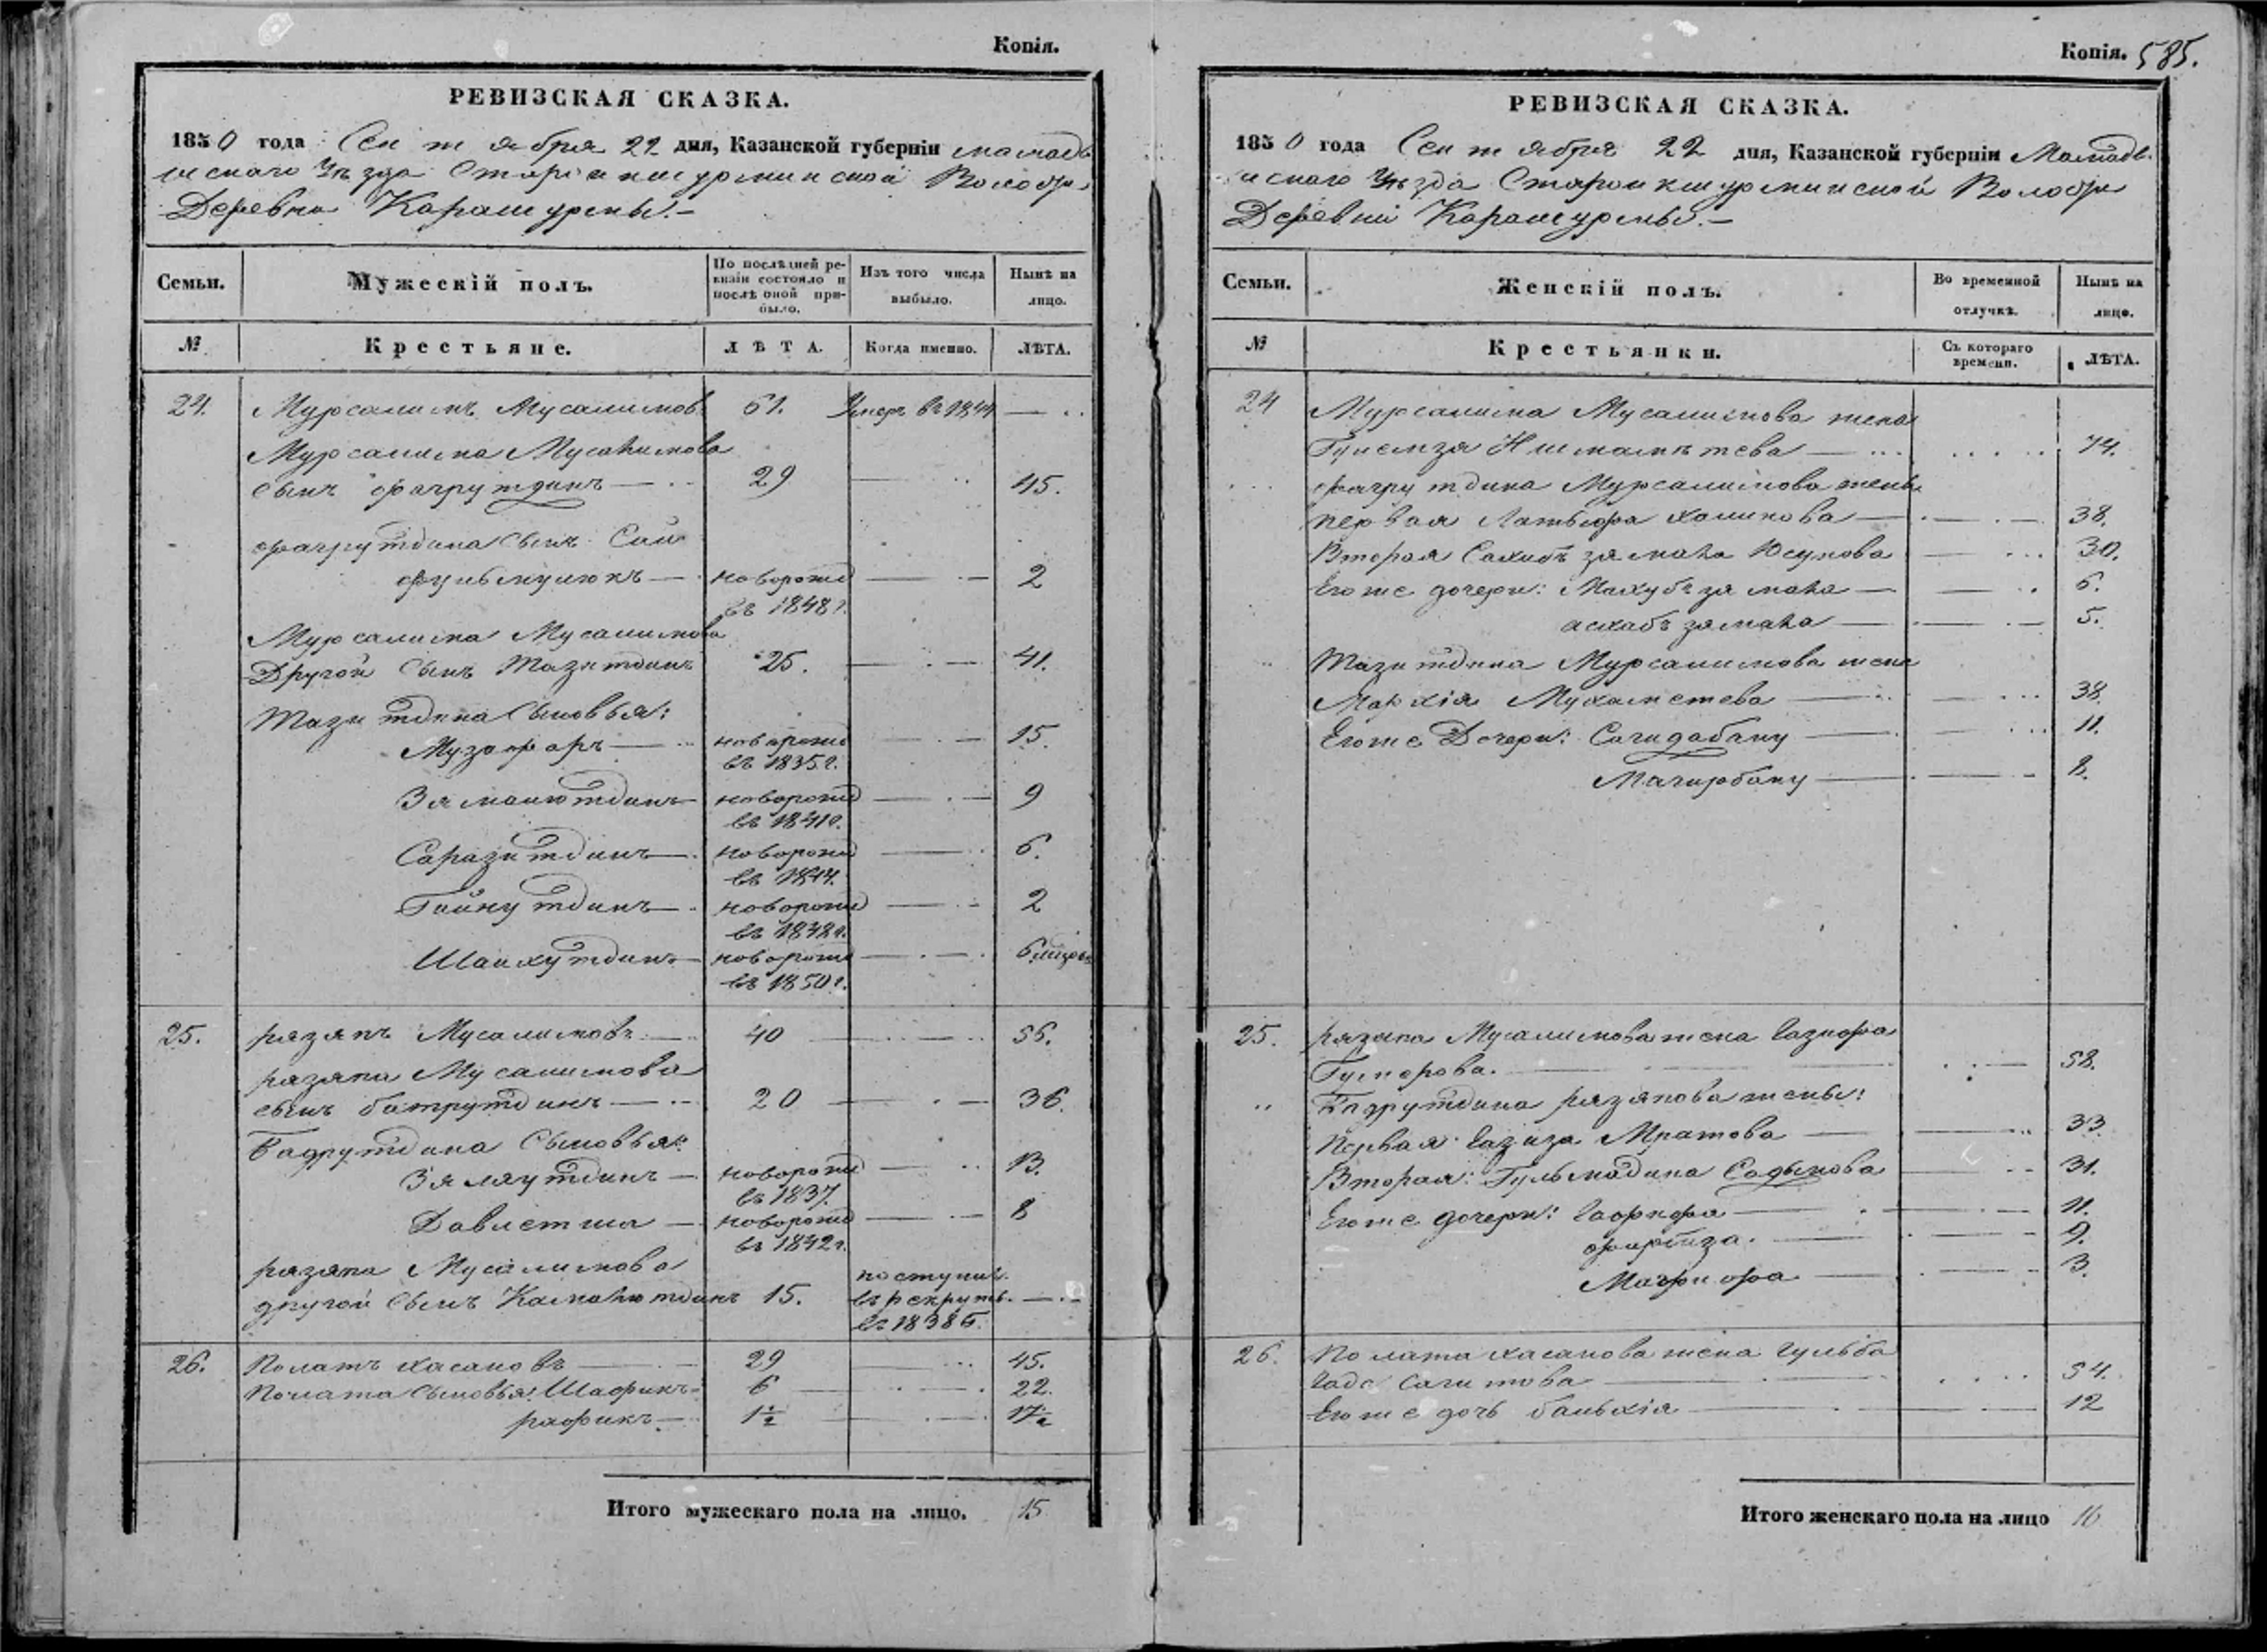 Копія.
РЕВИЗСКАЯ СКАЗКА.
1850 года Сентября 22 дня, Казанской губерніи Мамады
шскаго Уѣзда Староикшурминской Волости
Деревни Карашурмы.-
Семьи.
Мужескій полъ.
По послѣдней ре-
визіи состояло и
послѣ оной при-
было.
Изъ того числа
выбыло.
Нынѣ на
лицо.
№
Крестьяне.
ЛѢТА.
Когда именно.
ЛѢТА.
24. Мурсалимъ Мусалимовъ 61. Умеръ въ 1844 —
Мурсалима Мусалимова
сынъ фахрутдинъ — 29 — 45.
фахрутдина сынъ Сай
фульмулюкъ — новорожд — 2
въ 1848 г.
Мурсалима Мусалимова
Другой сынъ Тазитдинъ 25. — 41.
Тазитдина сыновья:
Музафаръ — новорожд — 15.
въ 1835 г.
Зямалютдинъ — новорожд — 9
въ 1841 г.
Саразитдинъ — новорожд — 6.
въ 1844.
Гайнутдинъ — новорожд — 2
въ 1848 г.
Шайхутдинъ — новорожд — 6 мѣсяц
въ 1850 г.
25. рязяпъ Мусалимовъ — 40 — 56.
рязяпа Мусалимова
сынъ батрутдинъ — 20 — 36.
Бадрутдина Сыновья:
Зяляутдинъ — новорожд — 13.
въ 1837.
Давлетша — новорожд — 8
въ 1842 г.
рязяпа Мусалимова
поступилъ
другой сынъ Камалютдинъ 15. въ рекруты —
въ 1838
26. Полатъ хасановъ — 29 — 45.
Полата сыновья: Шафикъ 6 — 22.
рафикъ — 1½ — 17½
Итого мужескаго пола на лицо. 15
Копія. 585.
РЕВИЗСКАЯ СКАЗКА.
1850 года Сентября 22 дня, Казанской губерніи Мамады-
шскаго Уѣзда Староикшурминской Волости
Деревни Карашурмы.-
Семьи.
Женскій полъ.
Во временной
отлучкѣ.
Нынѣ на
лицо.
№
Крестьянки.
Съ котораго
времени.
ЛѢТА.
24 Мурсалима Мусалимова жена
— 74.
фахрутдина Мурсалимова жены
первая Латыфа халикова — 38.
Вторая Сахибъ замала Юсупова — 30.
Его же дочери: Махубъ замала — 6.
асхабъ замала — 5.
Тазитдина Мурсалимова жена
Мархія Мухаметева — 38.
Его же Дочери: Сагидабану — 11.
Магирбану — 8.
25. рязяпа Мусалимова жена Газифа
Гумерова. — 58.
Бадрутдина рязяпова жены:
Первая Газиза Мратова — 33
Вторая: Гульмадина Садыкова — 31.
Его же дочери: — 11.
— 9.
Магфифа — 3.
26. Полата хасанова жена гульба
Сагитова — 54.
Его же дочь бальхія — 12
Итого женскаго пола на лицо 16